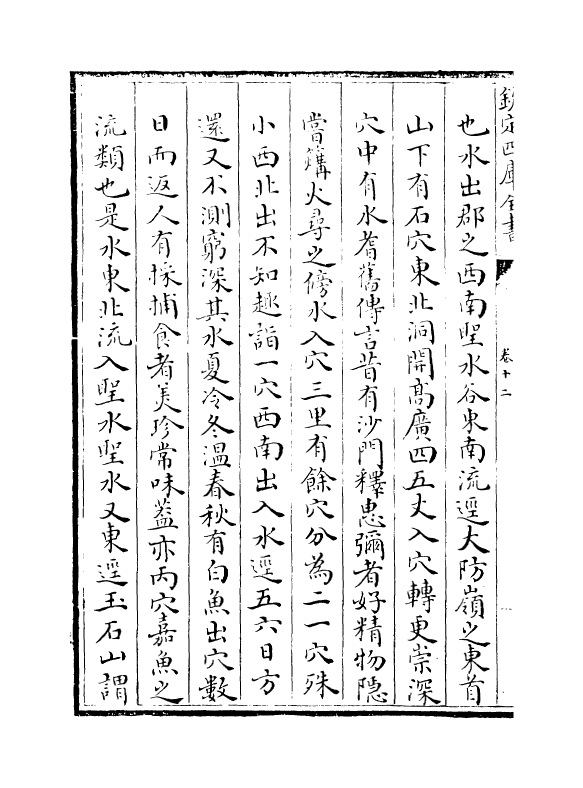 欽定四庫全書
卷十二
也水出郡之西南聖水谷東南流逕大防嶺之東首
山下有石穴東北洞開髙廣四五丈入穴轉更崇深
穴中有水耆舊傳言昔有沙門釋惠彌者好精物隠
嘗篝火尋之傍水入穴三里有餘穴分為二一穴殊
小西北出不知趣詣一穴西南出入水逕五六日方
還又不測窮深其水夏冷冬温春秋有白魚出穴數
日而返人有採捕食者美珍常味葢亦丙穴嘉魚之
流類也是水東北流入聖水聖水又東逕玉石山謂